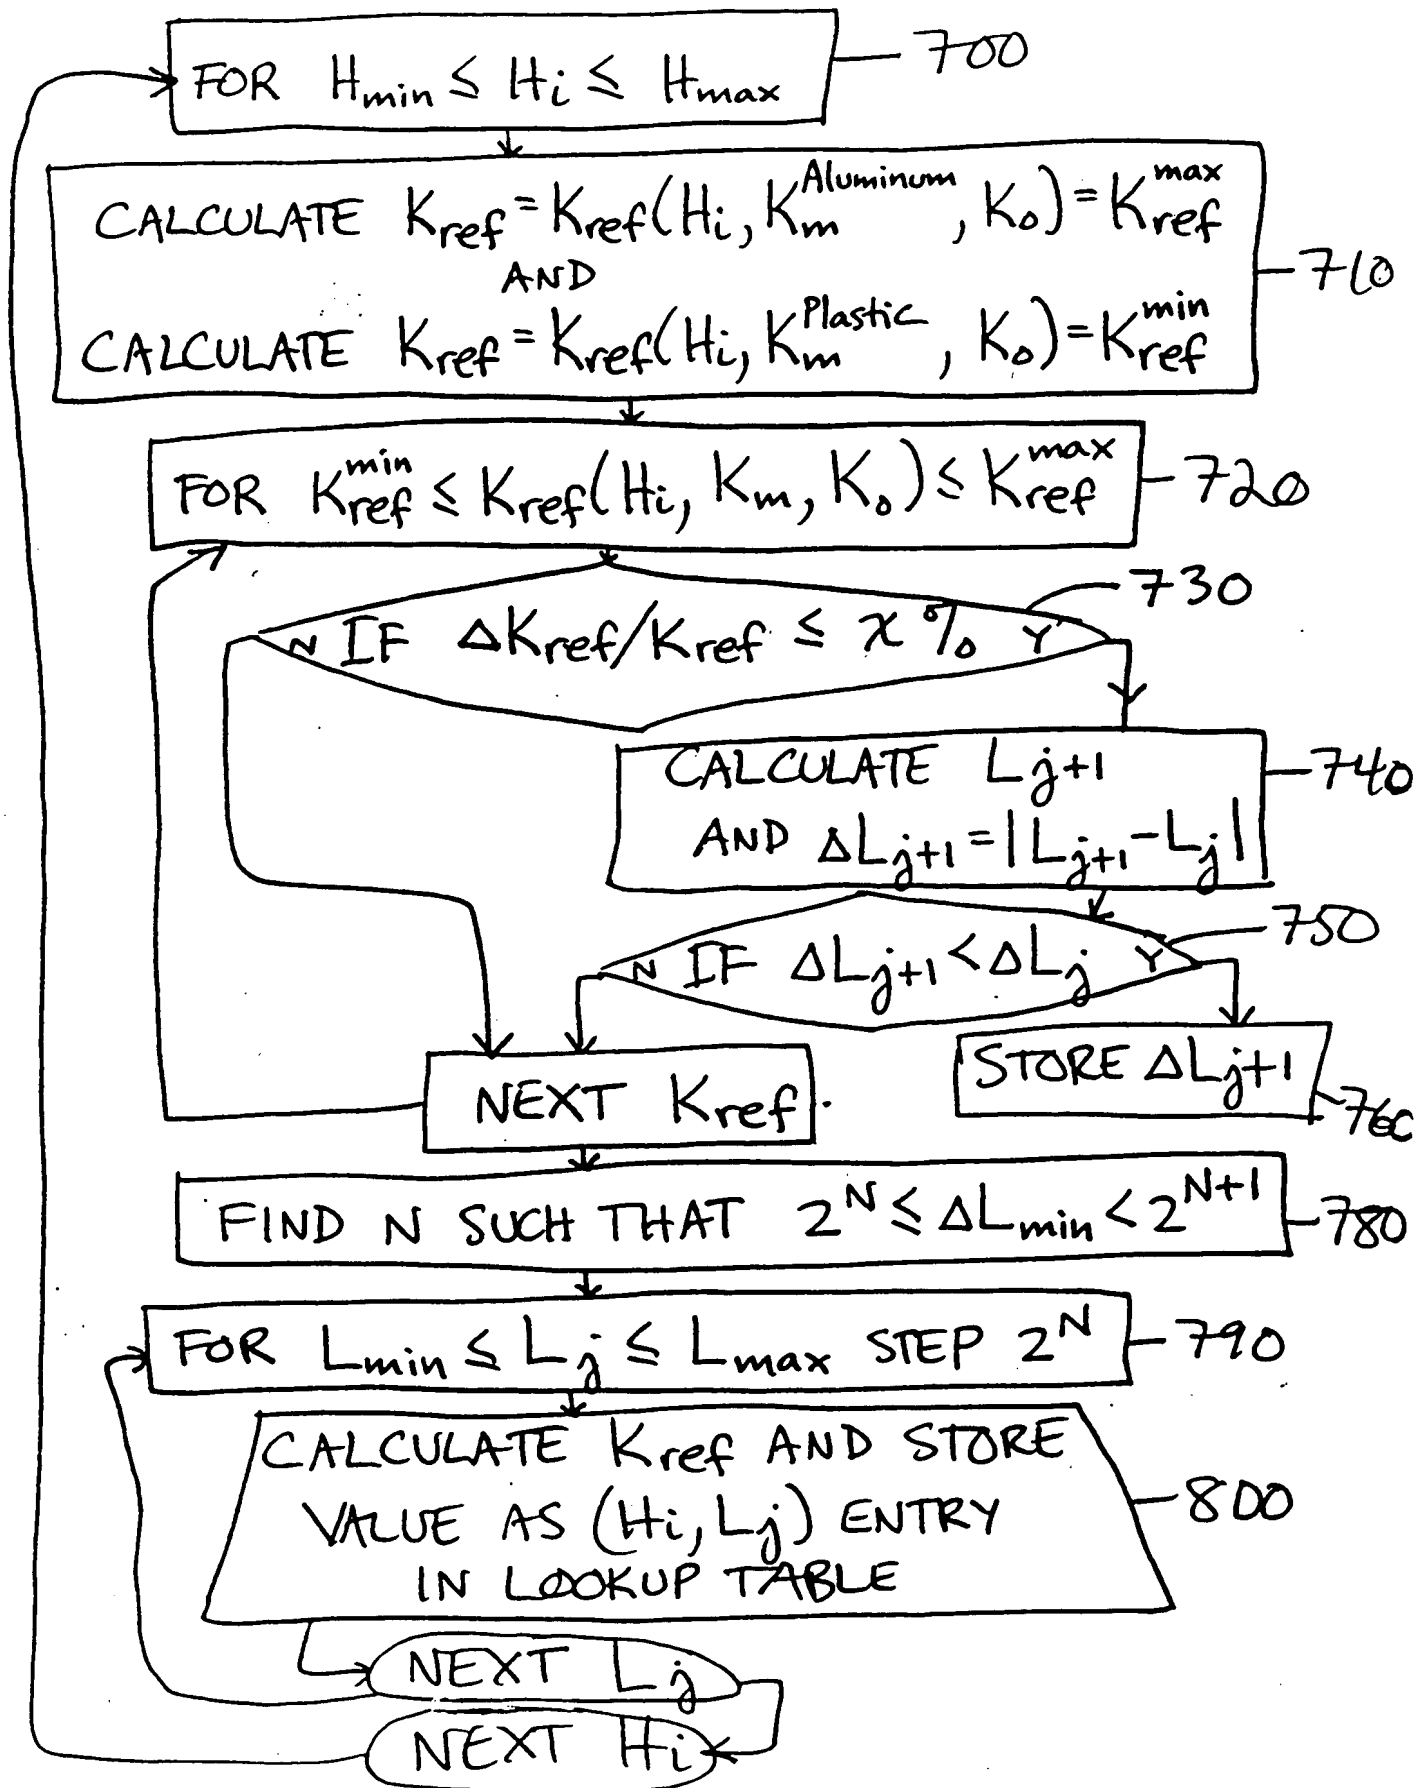 FOR Hmin ≤ Hi ≤ Hmax
700
CALCULATE Kref = Kref(Hi, Km^Aluminum, Ko) = Kref^max
AND
710
CALCULATE Kref = Kref(Hi, Km^Plastic, Ko) = Kref^min
FOR Kref^min ≤ Kref(Hi, Km, Ko) ≤ Kref^max
720
730
N IF ΔKref/Kref ≤ x% Y
CALCULATE Lj+1
740
AND ΔLj+1 = |Lj+1 - Lj|
750
N IF ΔLj+1 < ΔLj Y
STORE ΔLj+1
760
NEXT Kref
FIND N SUCH THAT 2^N ≤ ΔLmin < 2^N+1
780
FOR Lmin ≤ Lj ≤ Lmax STEP 2^N
790
CALCULATE Kref AND STORE
VALUE AS (Hi, Lj) ENTRY
800
IN LOOKUP TABLE
NEXT Lj
NEXT Hi